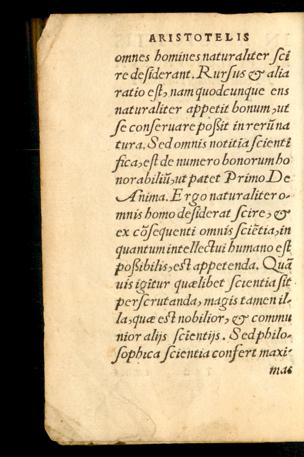 ARISTOTELIS
omnes homines naturaliter sci
re desiderant. Rursus & alia
ratio est, nam quodcunque ens
naturaliter appetit bonum, ut
se conseruare poßit in rerū na
tura. Sed omnis notitia scienti
fica, est de numero bonorum ho
norabiliū, ut patet Primo De
Anima. Ergo naturaliter o-
mnis homo desiderat scire, &
ex cōsequenti omnis sciētia, in
quantum intellectui humano est
poßibilis, est appetenda. Quā
uis igitur quælibet scientia sit
perscrutanda, magis tamen il-
la, quæ est nobilior, & commu
nior alijs scientijs. Sed philo-
sophica scientia confert maxi-
mas